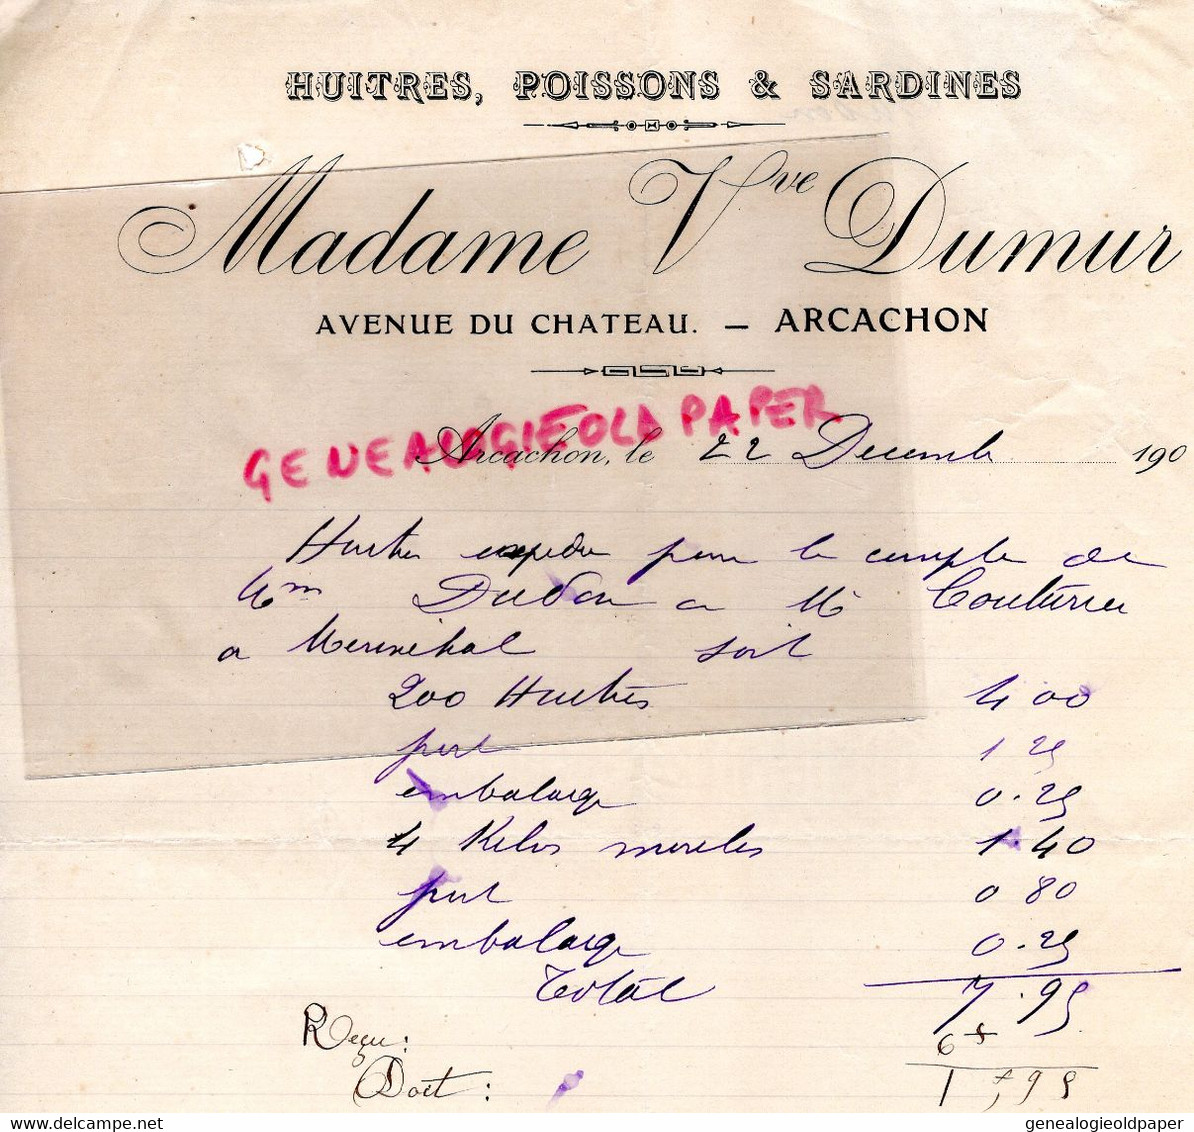 HUITRES, POISSONS & SARDINES
Madame Vve Dumur
AVENUE DU CHATEAU. — ARCACHON
GENEALOGIEOLDPAPER
Arcachon, le 22 Decemb 190
Huitres expedie pour le compte de
Mm Dudon a Mr Couturier
a soit
200 Huitres 4 00
port 1 25
embalage 0.25
4 Kilos moules 1.40
port 0 80
embalage 0.25
Total 7.95
Reçu: 6f
Doit: 1f,95
genealogieoldpaper